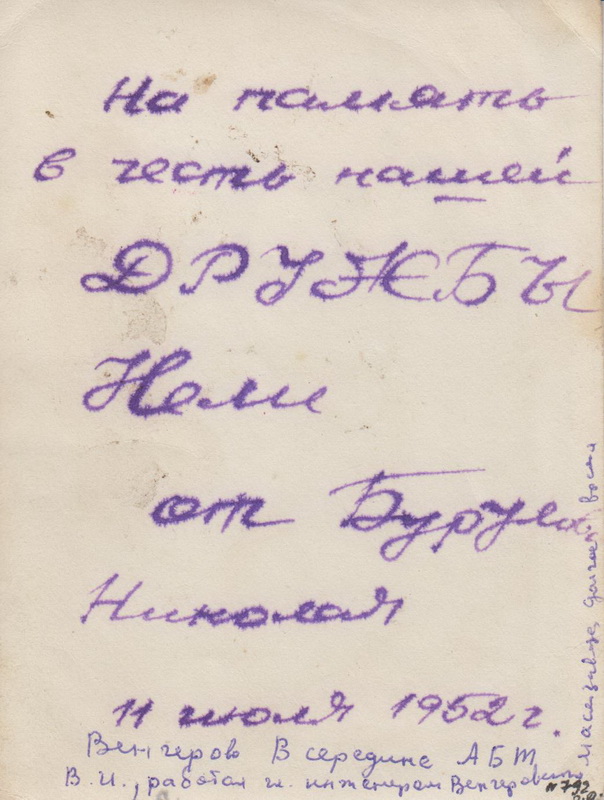 На память
в честь нашей
ДРУЖБЫ
Нели
от
Николая
11 июля 1952 г.
Венгеров В середине АБТ
В. И., работал гл. инженером Венгеровского
маслозавода, долгое время
№ 792